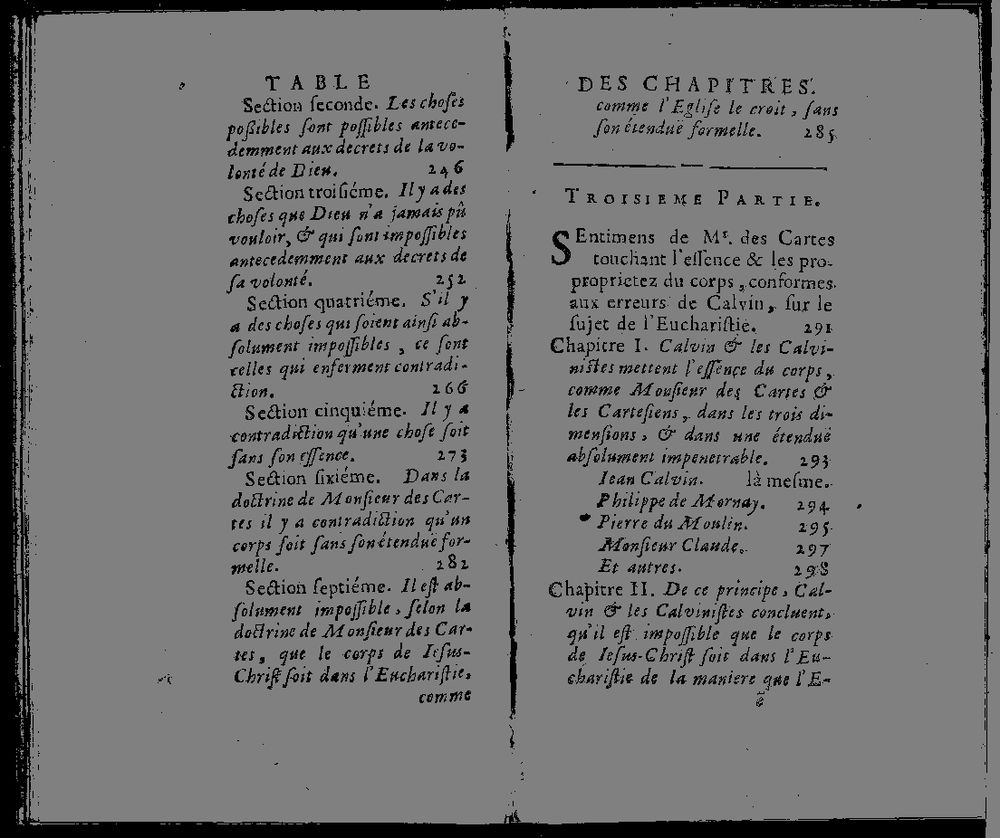 TABLE
Section seconde. Les choses
poßibles sont possibles antece-
demment aux decrets de la vo-
lonté de Dieu. 246
Section troisiéme. Il y a des
choses que Dieu n'a jamais pû
vouloir, & qui sont impossibles
antecedemment aux decrets de
sa volonté. 252
Section quatriéme. S'il y
a des choses qui soient ainsi ab-
solument impossibles, ce sont
celles qui enferment contradi-
ction. 266
Section cinquiéme. Il y a
contradiction qu'une chose soit
sans son essence. 273
Section sixiéme. Dans la
doctrine de Monsieur des Car-
tes il y a contradiction qu'un
corps soit sans son étenduë for-
melle. 282
Section septiéme. Il est ab-
solument impossible, selon la
doctrine de Monsieur des Car-
tes, que le corps de Iesus-
Christ soit dans l'Eucharistie,
comme
DES CHAPITRES.
comme l'Eglise le croit, sans
son étenduë formelle. 285
TROISIEME PARTIE.
SEntimens de Mr. des Cartes
touchant l'essence & les pro-
proprietez du corps, conformes
aux erreurs de Calvin, sur le
sujet de l'Eucharistie. 291
Chapitre I. Calvin & les Calvi-
nistes mettent l'essence du corps,
comme Monsieur des Cartes &
les Cartesiens, dans les trois di-
mensions, & dans une étenduë
absolument impenetrable. 293
Iean Calvin. là mesme.
Philippe de Mornay. 294
Pierre du Moulin. 295
Monsieur Claude. 297
Et autres. 298
Chapitre II. De ce principe, Cal-
vin & les Calvinistes concluent,
qu'il est impossible que le corps
de Iesus-Christ soit dans l'Eu-
charistie de la maniere que l'E-
ẽ